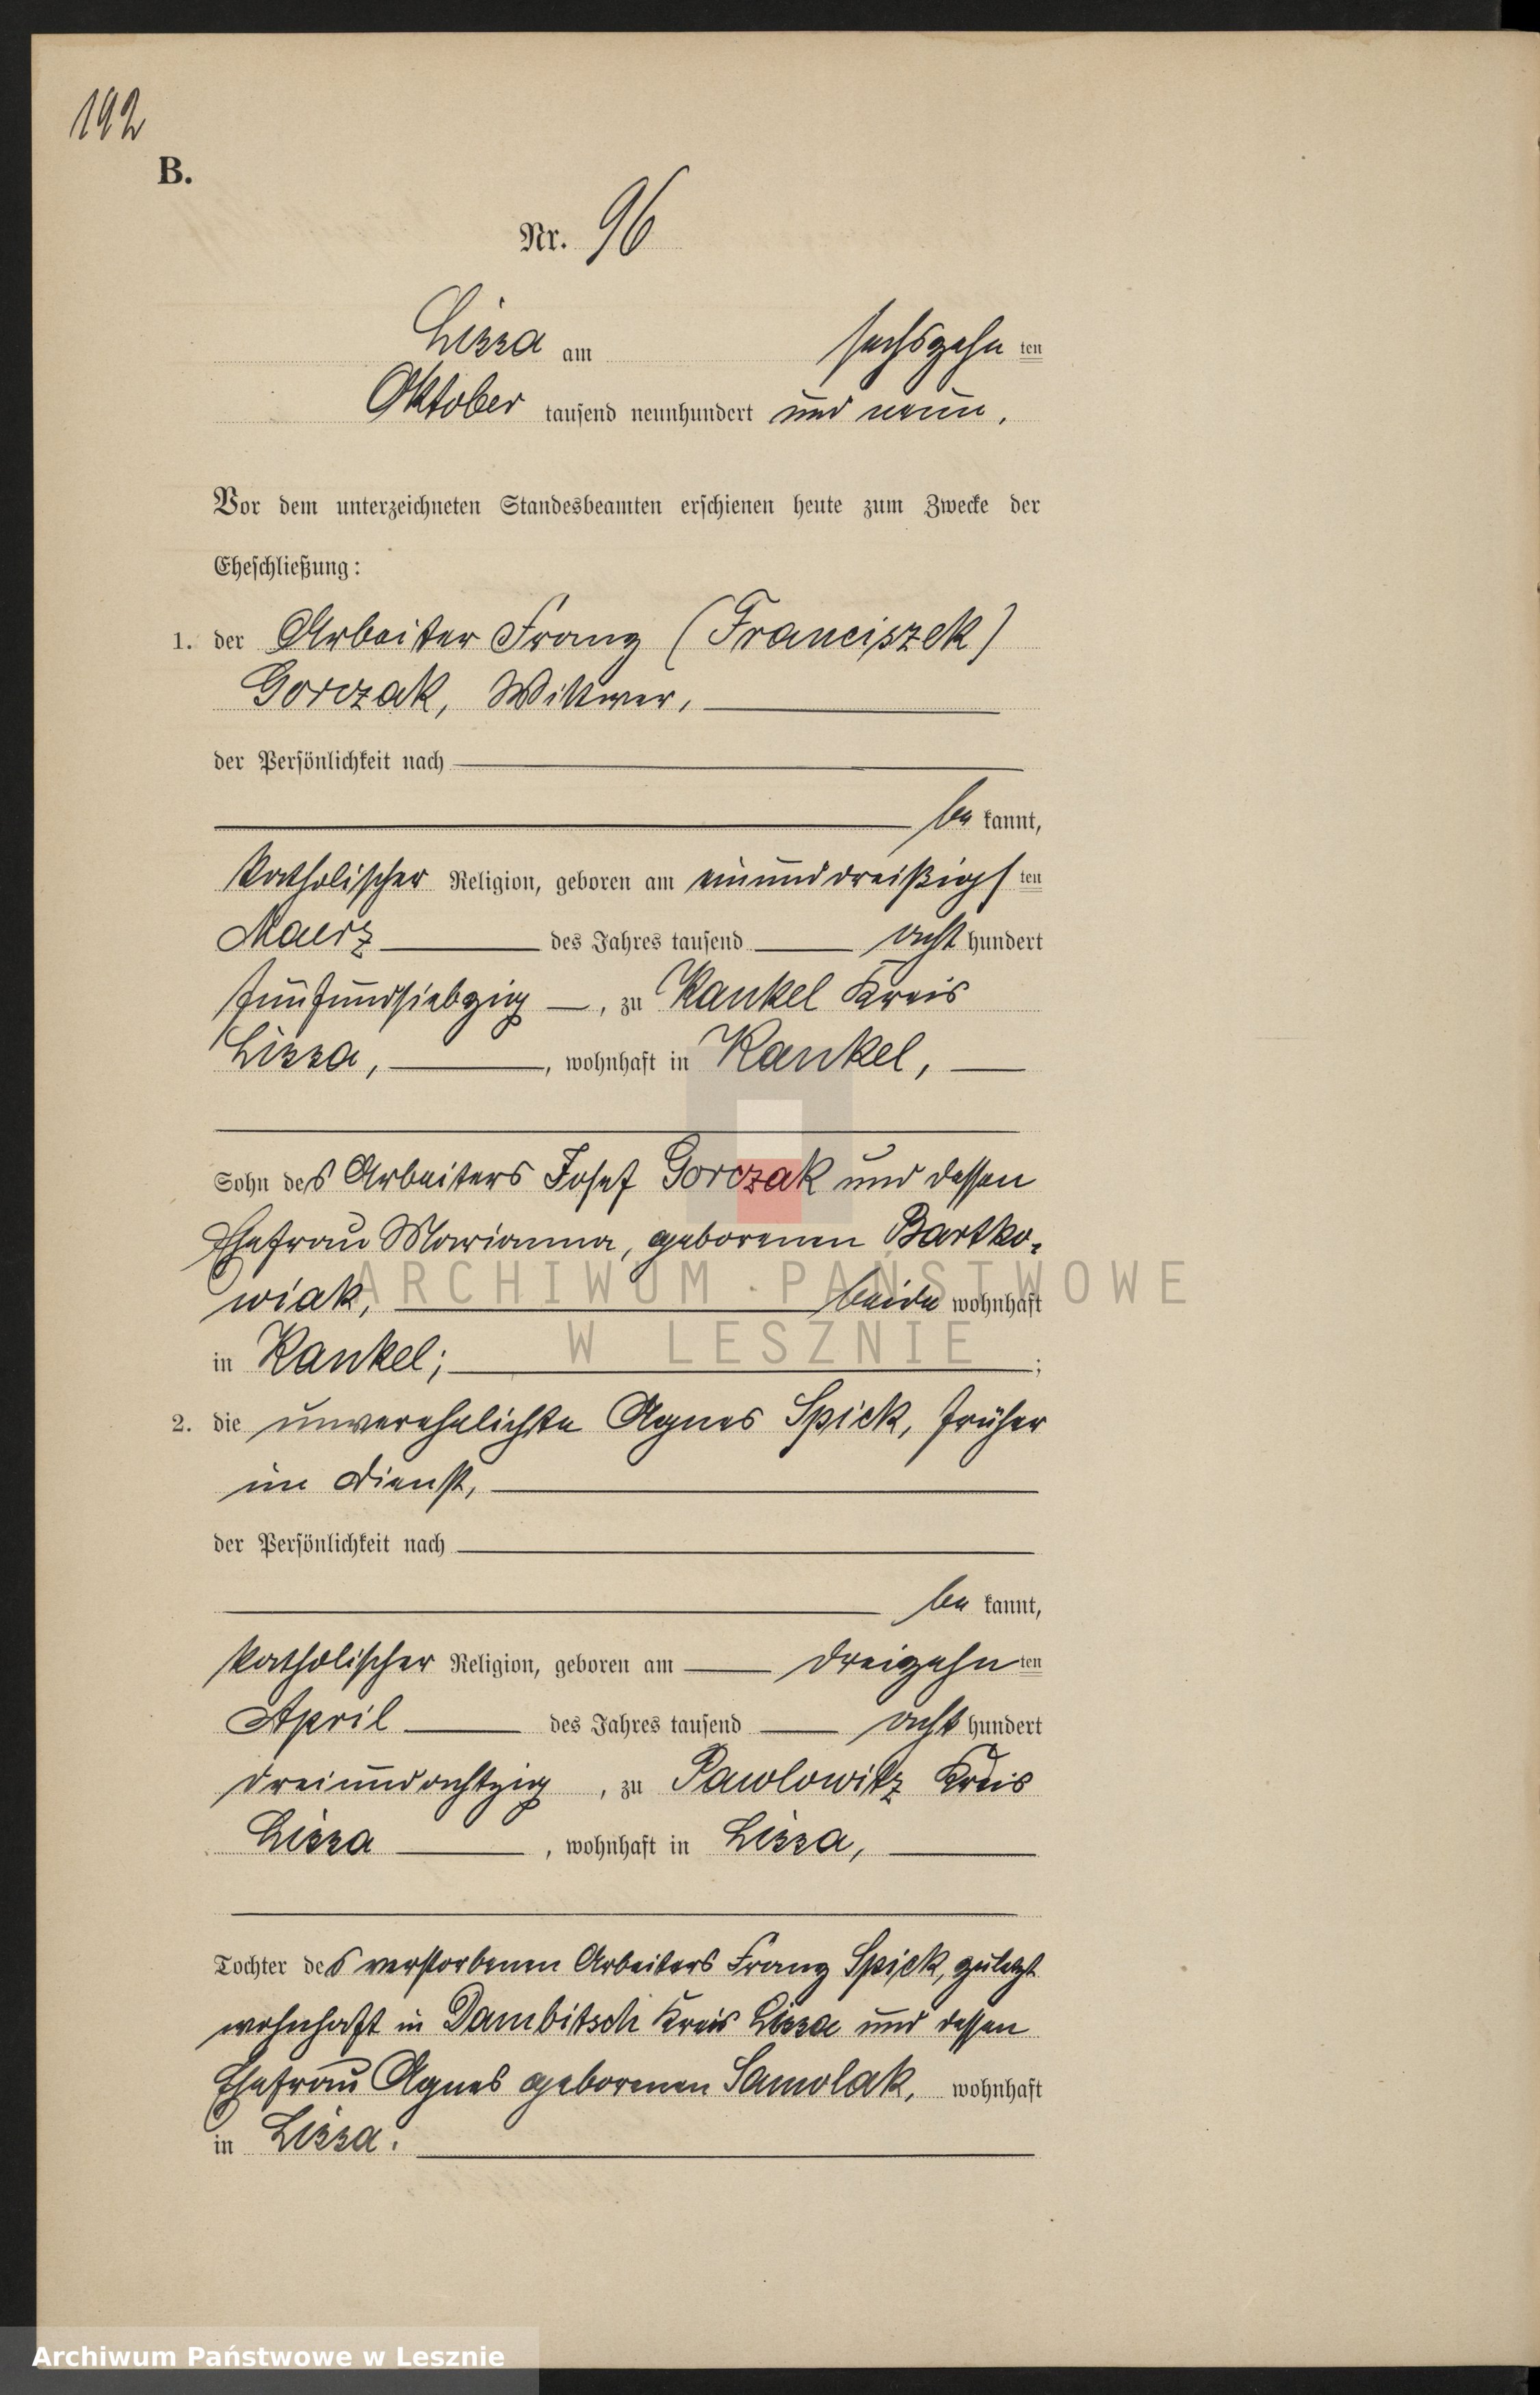 192
B.
Nr. 96
Lissa am sechszehn ten
Oktober tausend neunhundert und neun.
Vor dem unterzeichneten Standesbeamten erschienen heute zum Zwecke der
Eheschließung:
1. der Arbeiter Franz (Franciszek)
Gorczak, Wittwer,
der Persönlichkeit nach
be kannt,
katholischer Religion, geboren am einunddreißigs ten
Maerz des Jahres tausend acht hundert
fünfundsiebzig, zu Kankel Kreis
Lissa, , wohnhaft in Kankel,
Sohn des Arbeiters Josef Gorczak und dessen
Ehefrau Marianna, geborenen Bartko-
wiak, beide wohnhaft
ARCHIWUM PAŃSTWOWE
W LESZNIE
in Kankel; ;
2. die unverehelichte Agnes Spick, früher
im Dienst,
der Persönlichkeit nach
be kannt,
katholischer Religion, geboren am dreizehn ten
April des Jahres tausend acht hundert
dreiundachtzig , zu Pawlowitz Kreis
Lissa , wohnhaft in Lissa,
Tochter des verstorbenen Arbeiters Franz Spick, zuletzt
wohnhaft in Dambitsch Kreis Lissa und dessen
Ehefrau Agnes geborenen Samolak, wohnhaft
in Lissa.
Archiwum Państwowe w Lesznie